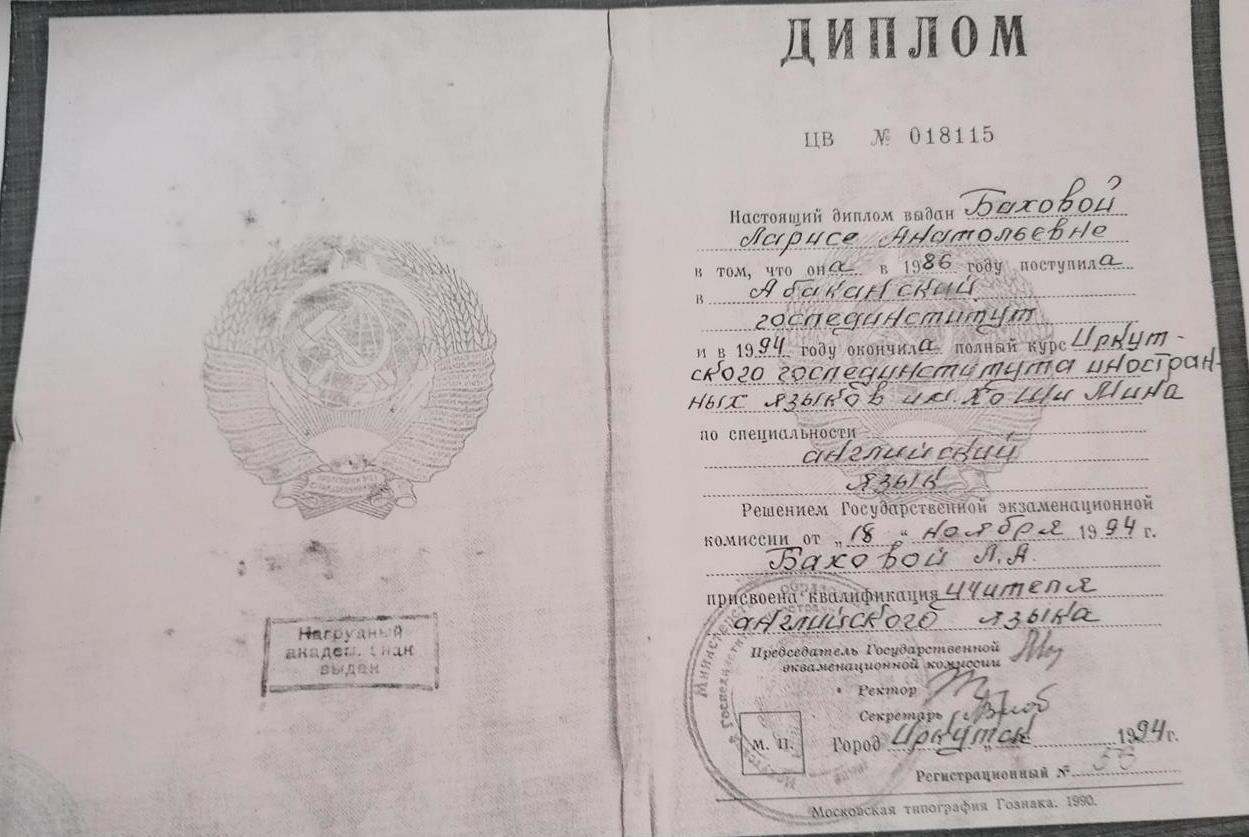 Нагрудный
академ. знак
выдан
ДИПЛОМ
ЦВ № 018115
Настоящий диплом выдан Баховой
Ларисе Анатольевне
в том, что она в 1986 году поступила
в Абаканский
госпединститут
и в 1994 году окончила полный курс Иркут-
ского госпединститута иностран-
ных языков им. Хо Ши Мина
по специальности
английский
язык
Решением Государственной экзаменационной
комиссии от „18“ ноября 1994 г.
Баховой Л.А.
присвоена квалификация учителя
английского языка
Председатель Государственной
экзаменационной комиссии
Ректор
Секретарь
М. П. Город Иркутск 1994 г.
Регистрационный №
Московская типография Гознака. 1990.